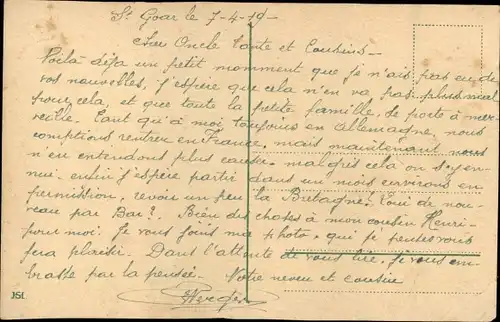 St Goar le 7-4-19-
Cher Oncle Tante et Cousins-
Voilà déja un petit momment que je n'ais pas eu de
vos nouvelles, j'éspère que cela n'en va pas plus mal
pour cela, et que toute la petite famille, se porte à mer-
veille. Tant qu'à moi toujours en Allemagne, nous
comptions rentrer en France, mais maintenant nous
n'en entendons plus causer. malgrés cela on s'y en-
nui. enfin j'éspère partir dans un mois environs en
permission, revoir un peu la Bretagne. Quoi de nou-
veau par Bar?. Bien des choses à mon cousin Henri-
pour moi. Je vous joins ma photo, qui je pense vous
fera plaisir. Dans l'attente de vous lire, je vous em-
brasse par la pensée. Votre neveu et cousin
JSL